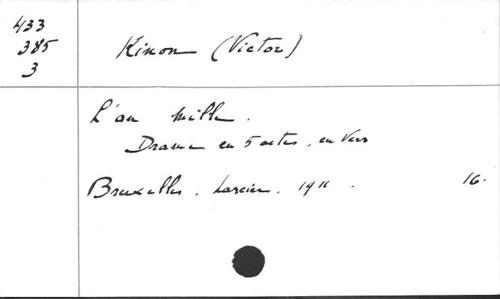 433
385
3
Kinon (Victor)
L'an mille.
Drame en 5 actes, en vers
Bruxelles. Larcier. 1911.
16.